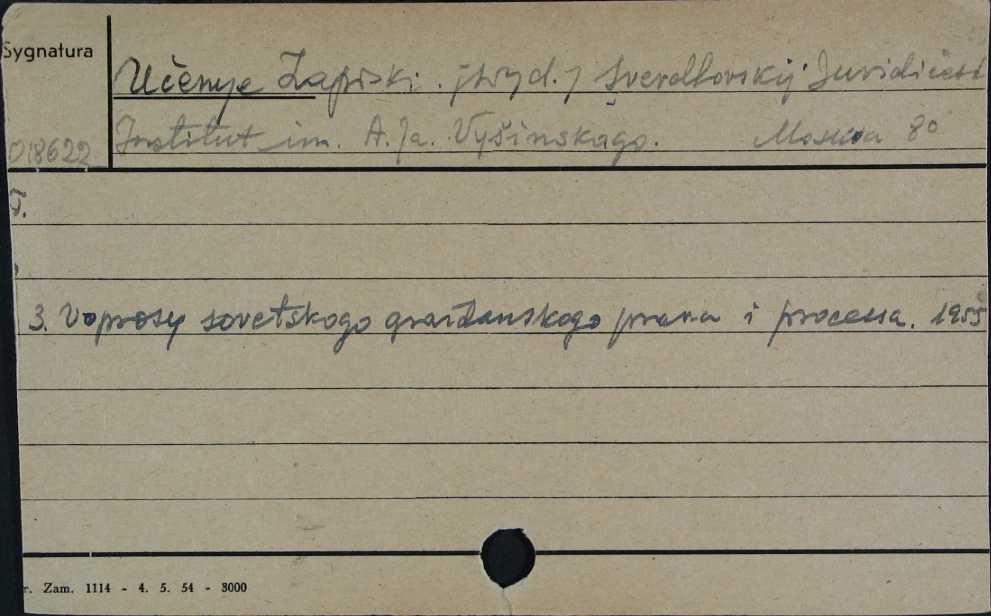 Sygnatura
Učenye Zapiski. [wyd.] Sverdlovskij Juridičesk
018622 Institut im. A. Ja. Vyšinskago. Moskva 8°
T.
3. Voprosy sovetskogo graždanskogo prava i processa. 1955
r. Zam. 1114 - 4. 5. 54 - 3000